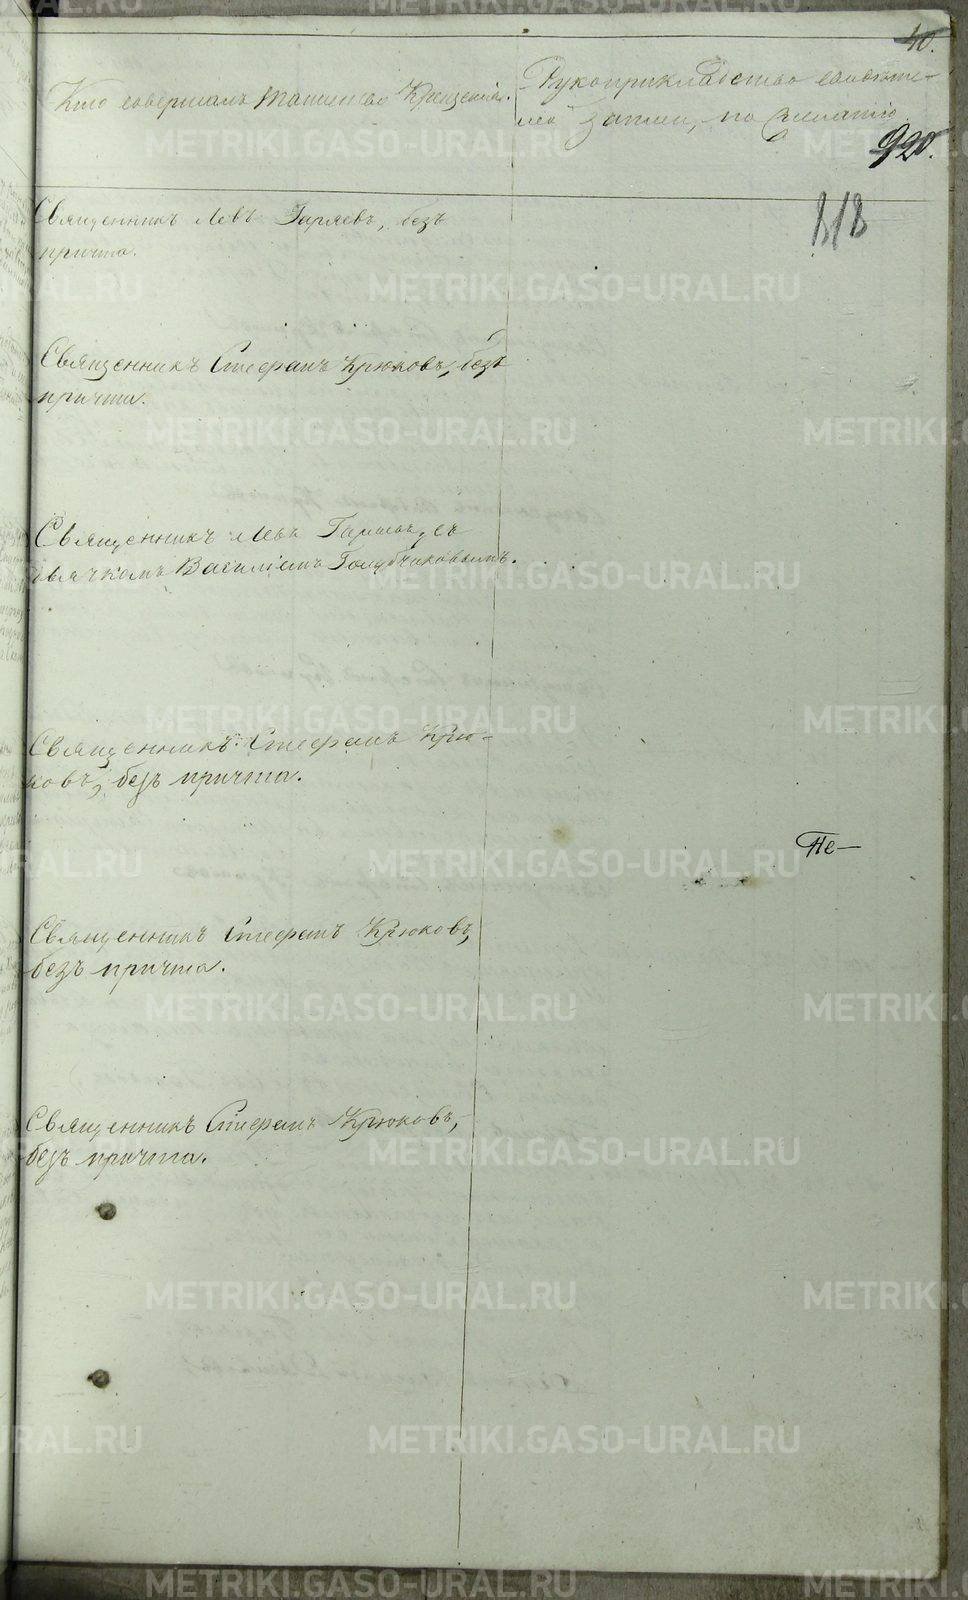 40.
Кто совершалъ таинство Крещенія.
Рукоприкладство свидѣте-
лей записи, по желанію
920.
818
Священникъ Левъ Гаряевъ, безъ
причта.
Священникъ Стефанъ Крюковъ, безъ
причта.
Священникъ Левъ Гаряевъ, съ
дьячкомъ Василіемъ Голубчиковымъ.
Священникъ Стефанъ Крю-
ковъ, безъ причта.
Не—
Священникъ Стефанъ Крюковъ,
безъ причта.
Священникъ Стефанъ Крюковъ,
безъ причта.
METRIKI.GASO-URAL.RU